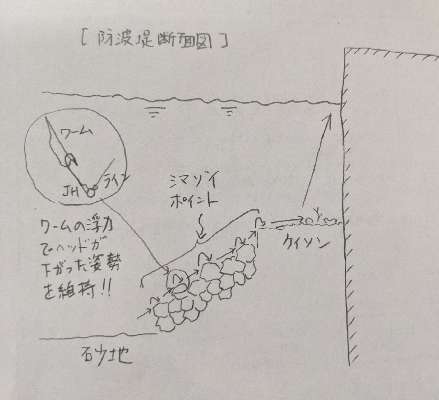 [防波堤断面図]
ワーム
ライン
JH
シマゾイ
ポイント
ワームの浮力
でヘッドが
下がった姿勢
を維持!!
ケイソン
砂地